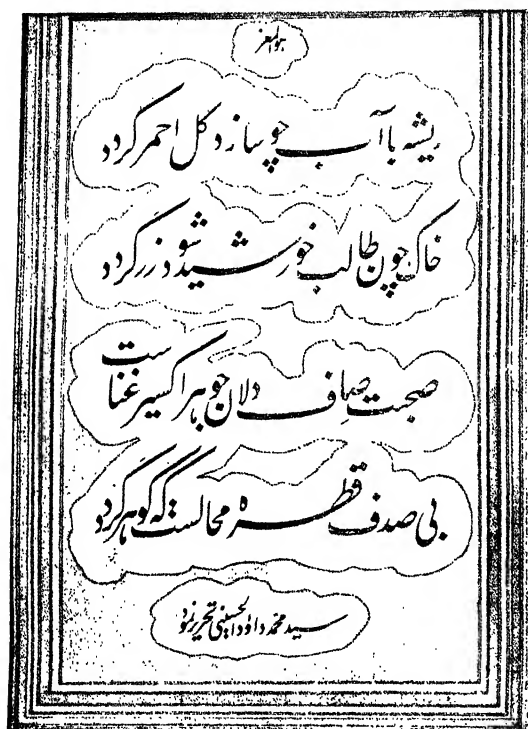 هوالمعز
ریشه با آب چو سازد گل احمر گردد
خاک چون طالب خورشید شود زر گردد
صحبت صاف دلان جوهر اکسیر غناست
بی صدف قطره محالست که گوهر گردد
سید محمد داود الحسینی تحریر نمود